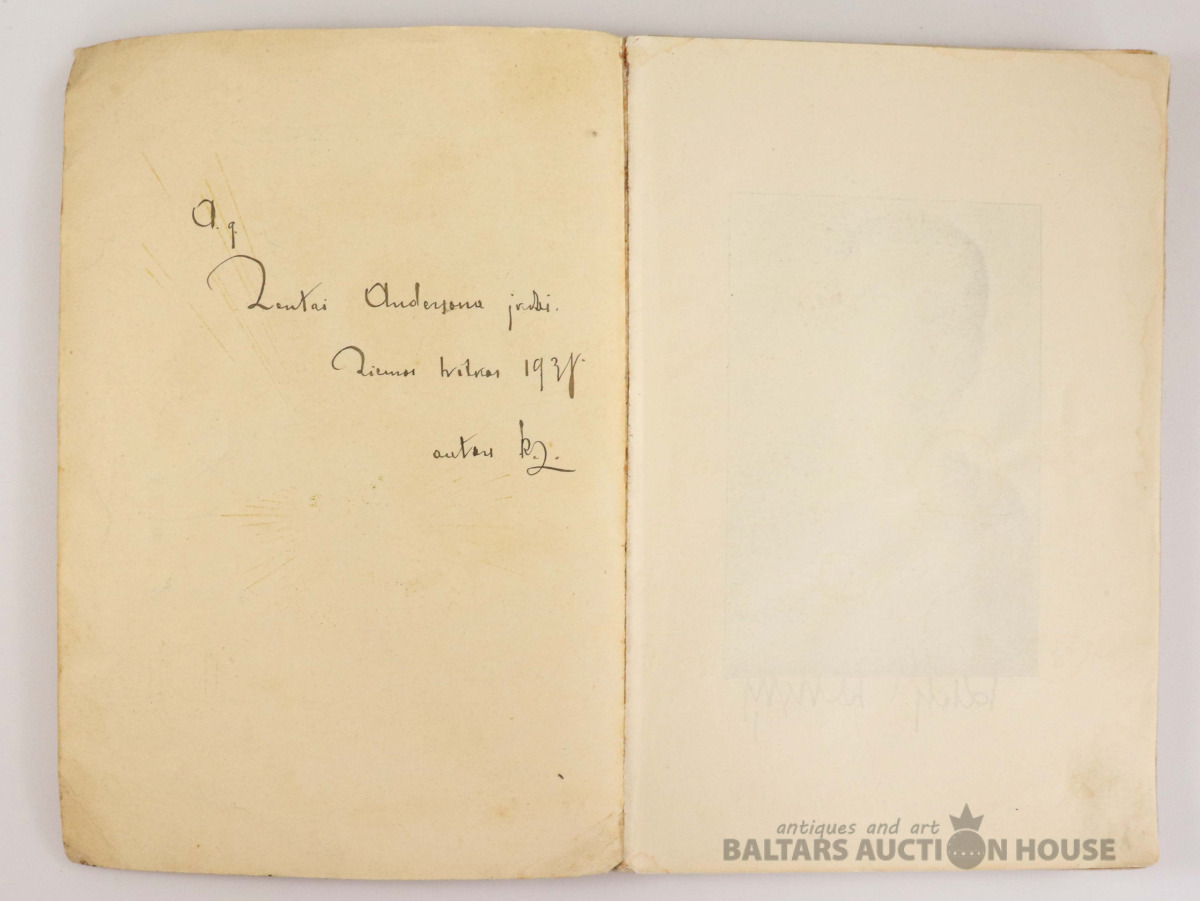 A. g.
Zentai Andersona jrdzei.
Ziemas svētkos 193
autors K.Z.
antiques and art
BALTARS AUCTION HOUSE